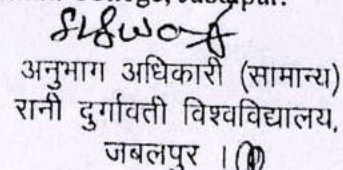 अनुभाग अधिकारी (सामान्य)
रानी दुर्गावती विश्वविद्यालय,
जबलपुर ।